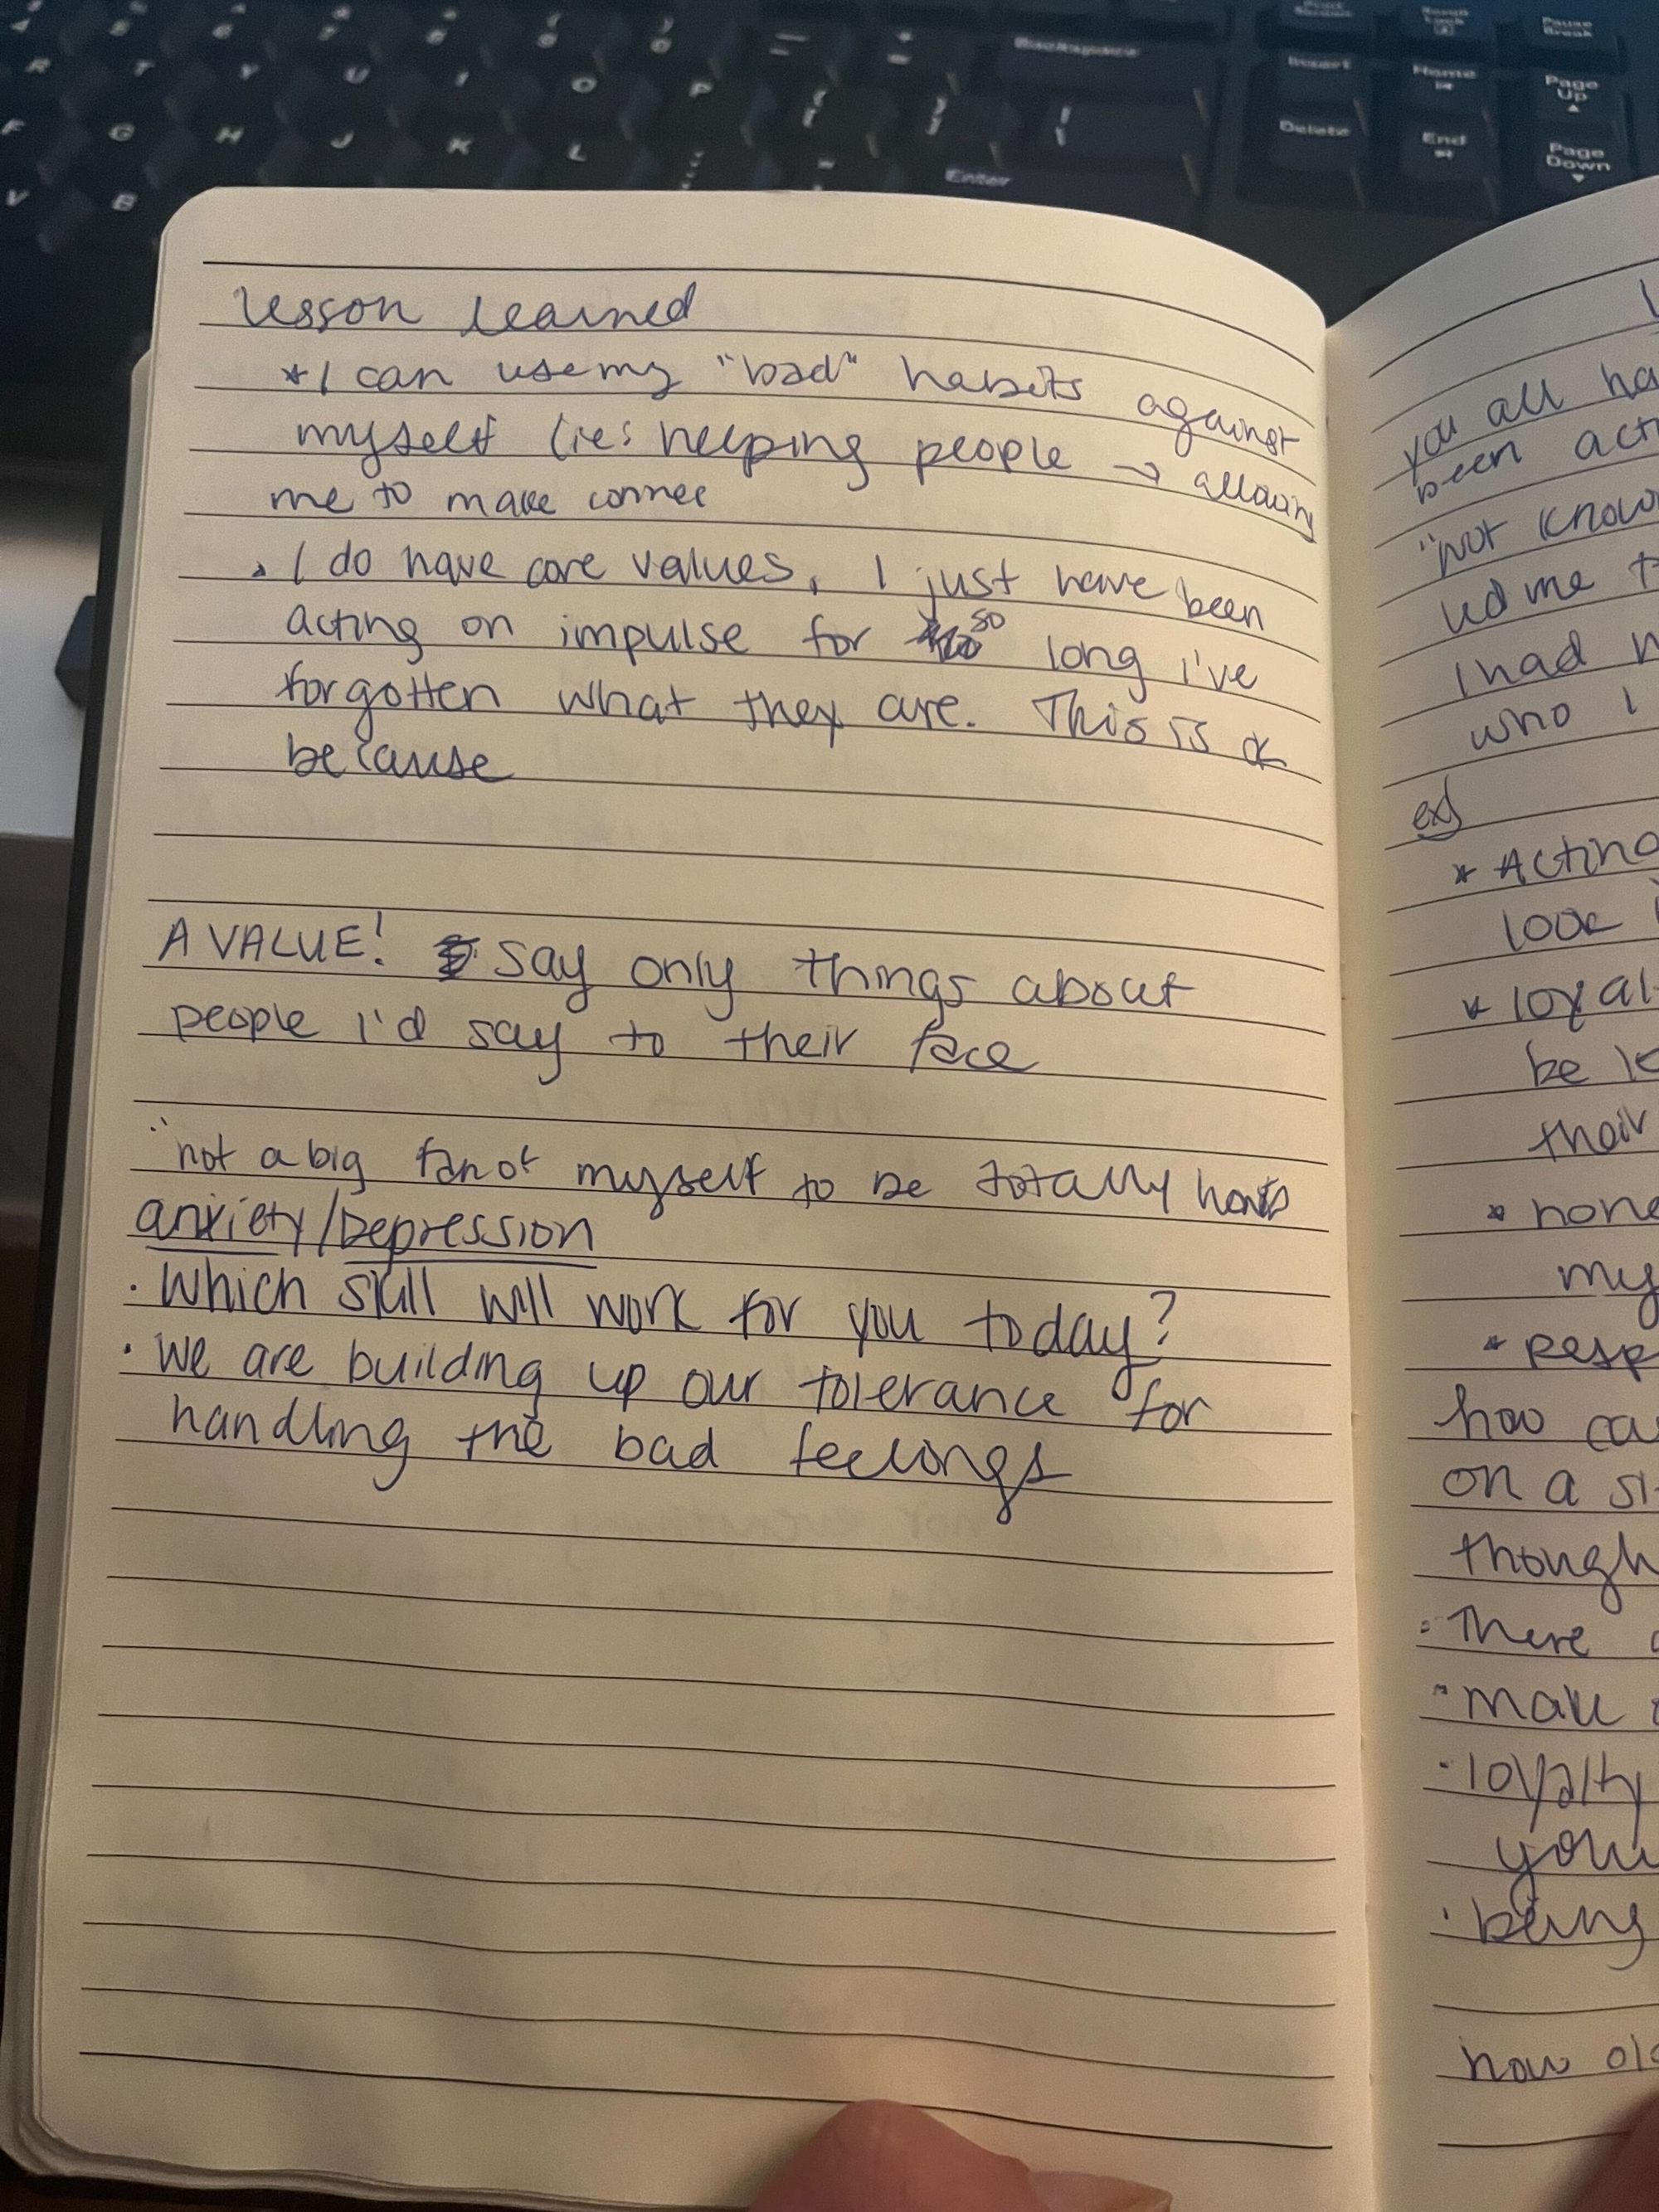 Print Screen
Scroll Lock
Pause Break
Backspace
Insert
Home
Page Up
R T Y U I O P { [ } ] | \
Delete
End
Page Down
F G H J K L : ; " '
Enter
V B
lesson learned
* I can use my "bad" habits against
myself (ie: helping people → allowing
me to make connec
• I do have core values, I just have been
acting on impulse for so long i've
forgotten what they are. This is
because
A VALUE! say only things about
people I'd say to their face
"not a big fan of myself to be totally
anxiety/Depression
• Which skill will work for you today?
• we are building up our tolerance for
handling the bad feelings
you all ha
been acti
"not know
led me t
I had n
who I
ex)
* Acting
look
* loyal
be le
their
* hone
my
* Resp
how ca
on a si
though
• There
• make
• loyalty
your
• being
how old